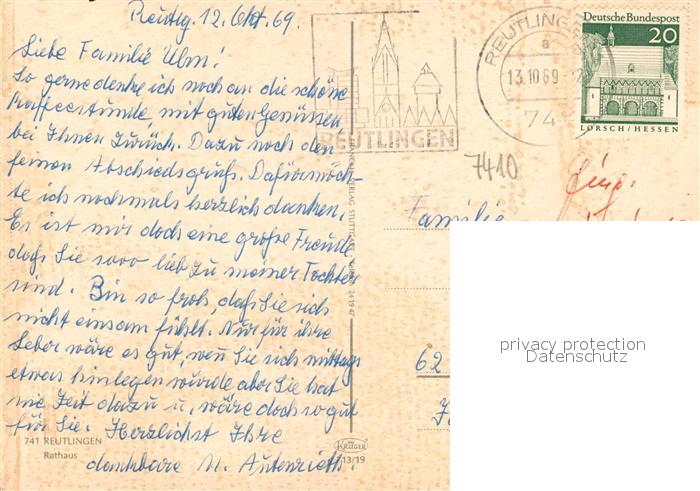 Reutlg. 12. Okt. 69.
Liebe Familie Ulm!
So gerne denke ich noch an die schöne
Kaffeestunde, mit guten Genüssen
bei Ihnen zurück. Dazu noch den
femen Abschiedsgruß. Dafür möch-
te ich nochmals herzlich danken.
Es ist mir doch eine große Freude
daß Sie sooo lieb zu meiner Tochter
sind. Bin so froh, daß Sie sich
nicht einsam fühlt. Nur für ihre
Leber wäre es gut, wen Sie sich mittags
etwas hinlegen würde aber Sie hat
nie Zeit dazu u. wäre doch so gut
für Sie. Herzlichst Ihre
dankbare M. Autenrieth.
741 REUTLINGEN
Rathaus
REUTLINGEN
REUTLINGEN
a
13.10.69
74
Deutsche Bundespost
20
LORSCH/HESSEN
7410
Familie
62
VERLAG STUTTGART
KRÜGER
713/19
privacy protection
Datenschutz